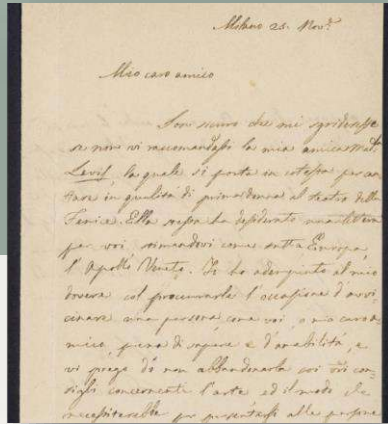 Milano 23. Nov.e
Mio caro amico
Son sicuro che mi sgridereste
se non vi raccomandassi la mia amica Mad.
la quale si porta in cotesta per can
tare in qualità di prima donna al teatro della
Fenice. Ella stessa ha desiderato una lettera
per voi, stimandovi come tutta Europa,
l'Apollo Veneto. Io ho adempiuto al mio
dovere col procurarle l'occasione d'avvi
cinare una persona come voi, o mio caro a
mico, piena di sapere e d'amabilità, e
vi prego di non abbandonarla coi vostri con
sigli concernenti l'arte, ed il modo che
necessiterebbe per presentarsi alle persone